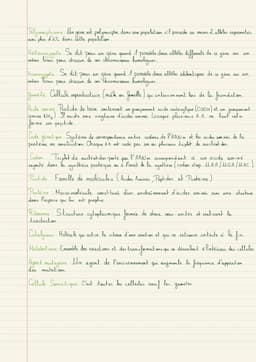 Polymorphisme Un gène est polymorphe dans une population s'il possède au moins 2 allèles représentés
dans cette population
Hétérozygote Se dit pour un gène quand il possède deux allèles différents de ce gène sur un
même locus pour chacun de ses chromosomes homologues.
Homozygote Se dit pour un gène quand il possède deux allèles identiques de ce gène sur un
même locus pour chacun de ses chromosomes homologues.
Gamète Cellule reproductrice (mâle ou femelle) qui interviennent lors de la fécondation.
Acide aminé de base contenant un groupement acide carboxylique (COOH) et un groupement
amine NH2
forme un peptide
Code génétique Système de correspondance entre codons de l'ARNm et les acides aminés de la
protéine en constitution. Chaque a.a est codé par un ou plusieurs triplet de nucléotides.
Codon Triplet de nucléotides porté par l'ARNm correspondant à un acide aminé
dans la synthèse protéique ou à l'arrêt de la synthèse (codon stop UAA/UGA/UAG)
Peptide Famille de molécules (Acides Aminés, Peptides et Protéines)
Protéine Macromolécule constituée d'un enchaînement d'acides aminés avec une structure
dans l'espace qui lui est propre
Ribosome Structure cytoplasmique formée de deux sous unités et réalisant la
traduction
Catalyseur Molécule qui active la vitesse d'une réaction et qui se retrouve intacte à la fin.
Métabolisme Ensemble des réactions et des transformations qui se déroulent à l'intérieur des cellules
Agent mutagène Un agent de l'environnement qui augmente la fréquence d'apparition
des mutations.
Cellule Somatique C'est toutes les cellules sauf les gamètes